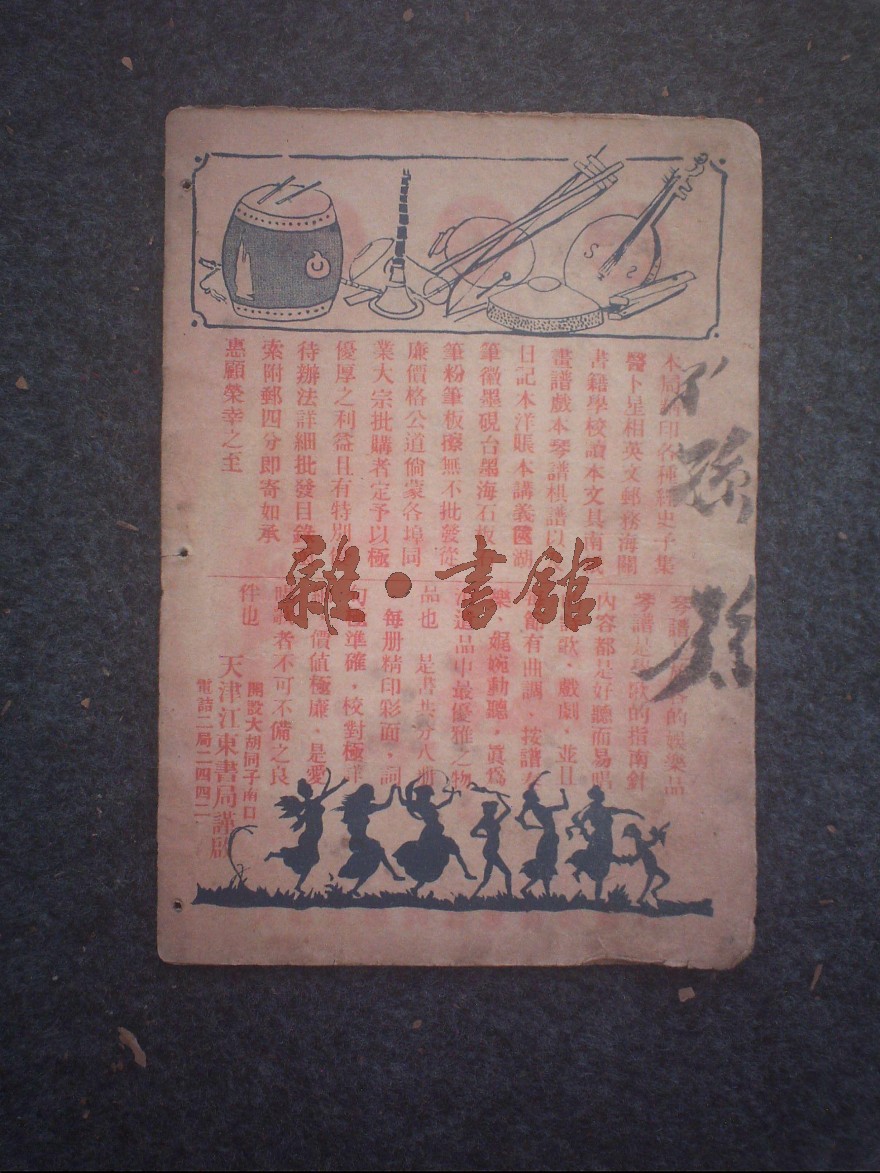 本局精印各種經史子集
醫卜星相英文郵務海關
書籍學校讀本文具南
畫譜戲本琴譜棋譜以
日記本洋賬本講義國湖
筆徽墨硯台墨海石板
筆粉筆板擦無不批發從
廉價格公道倘蒙各埠同
業大宗批購者定予以極
優厚之利益且有特別
待辦法詳細批發目錄
索附郵四分即寄如承
惠顧榮幸之至
琴譜的娛樂品
琴譜是的指南針
內容都是好聽而易唱
歌，戲劇，並且
有曲調，按譜
樂，娓婉動聽，眞爲
品中最優雅之物
品也 是書共分八册
每册精印彩面，詞
準確，校對極詳
價值極廉，是愛
者不可不備之良
伴也
天津江東書局謹啟
開設大胡同子南口
電話二局二四四二
雜·書舘